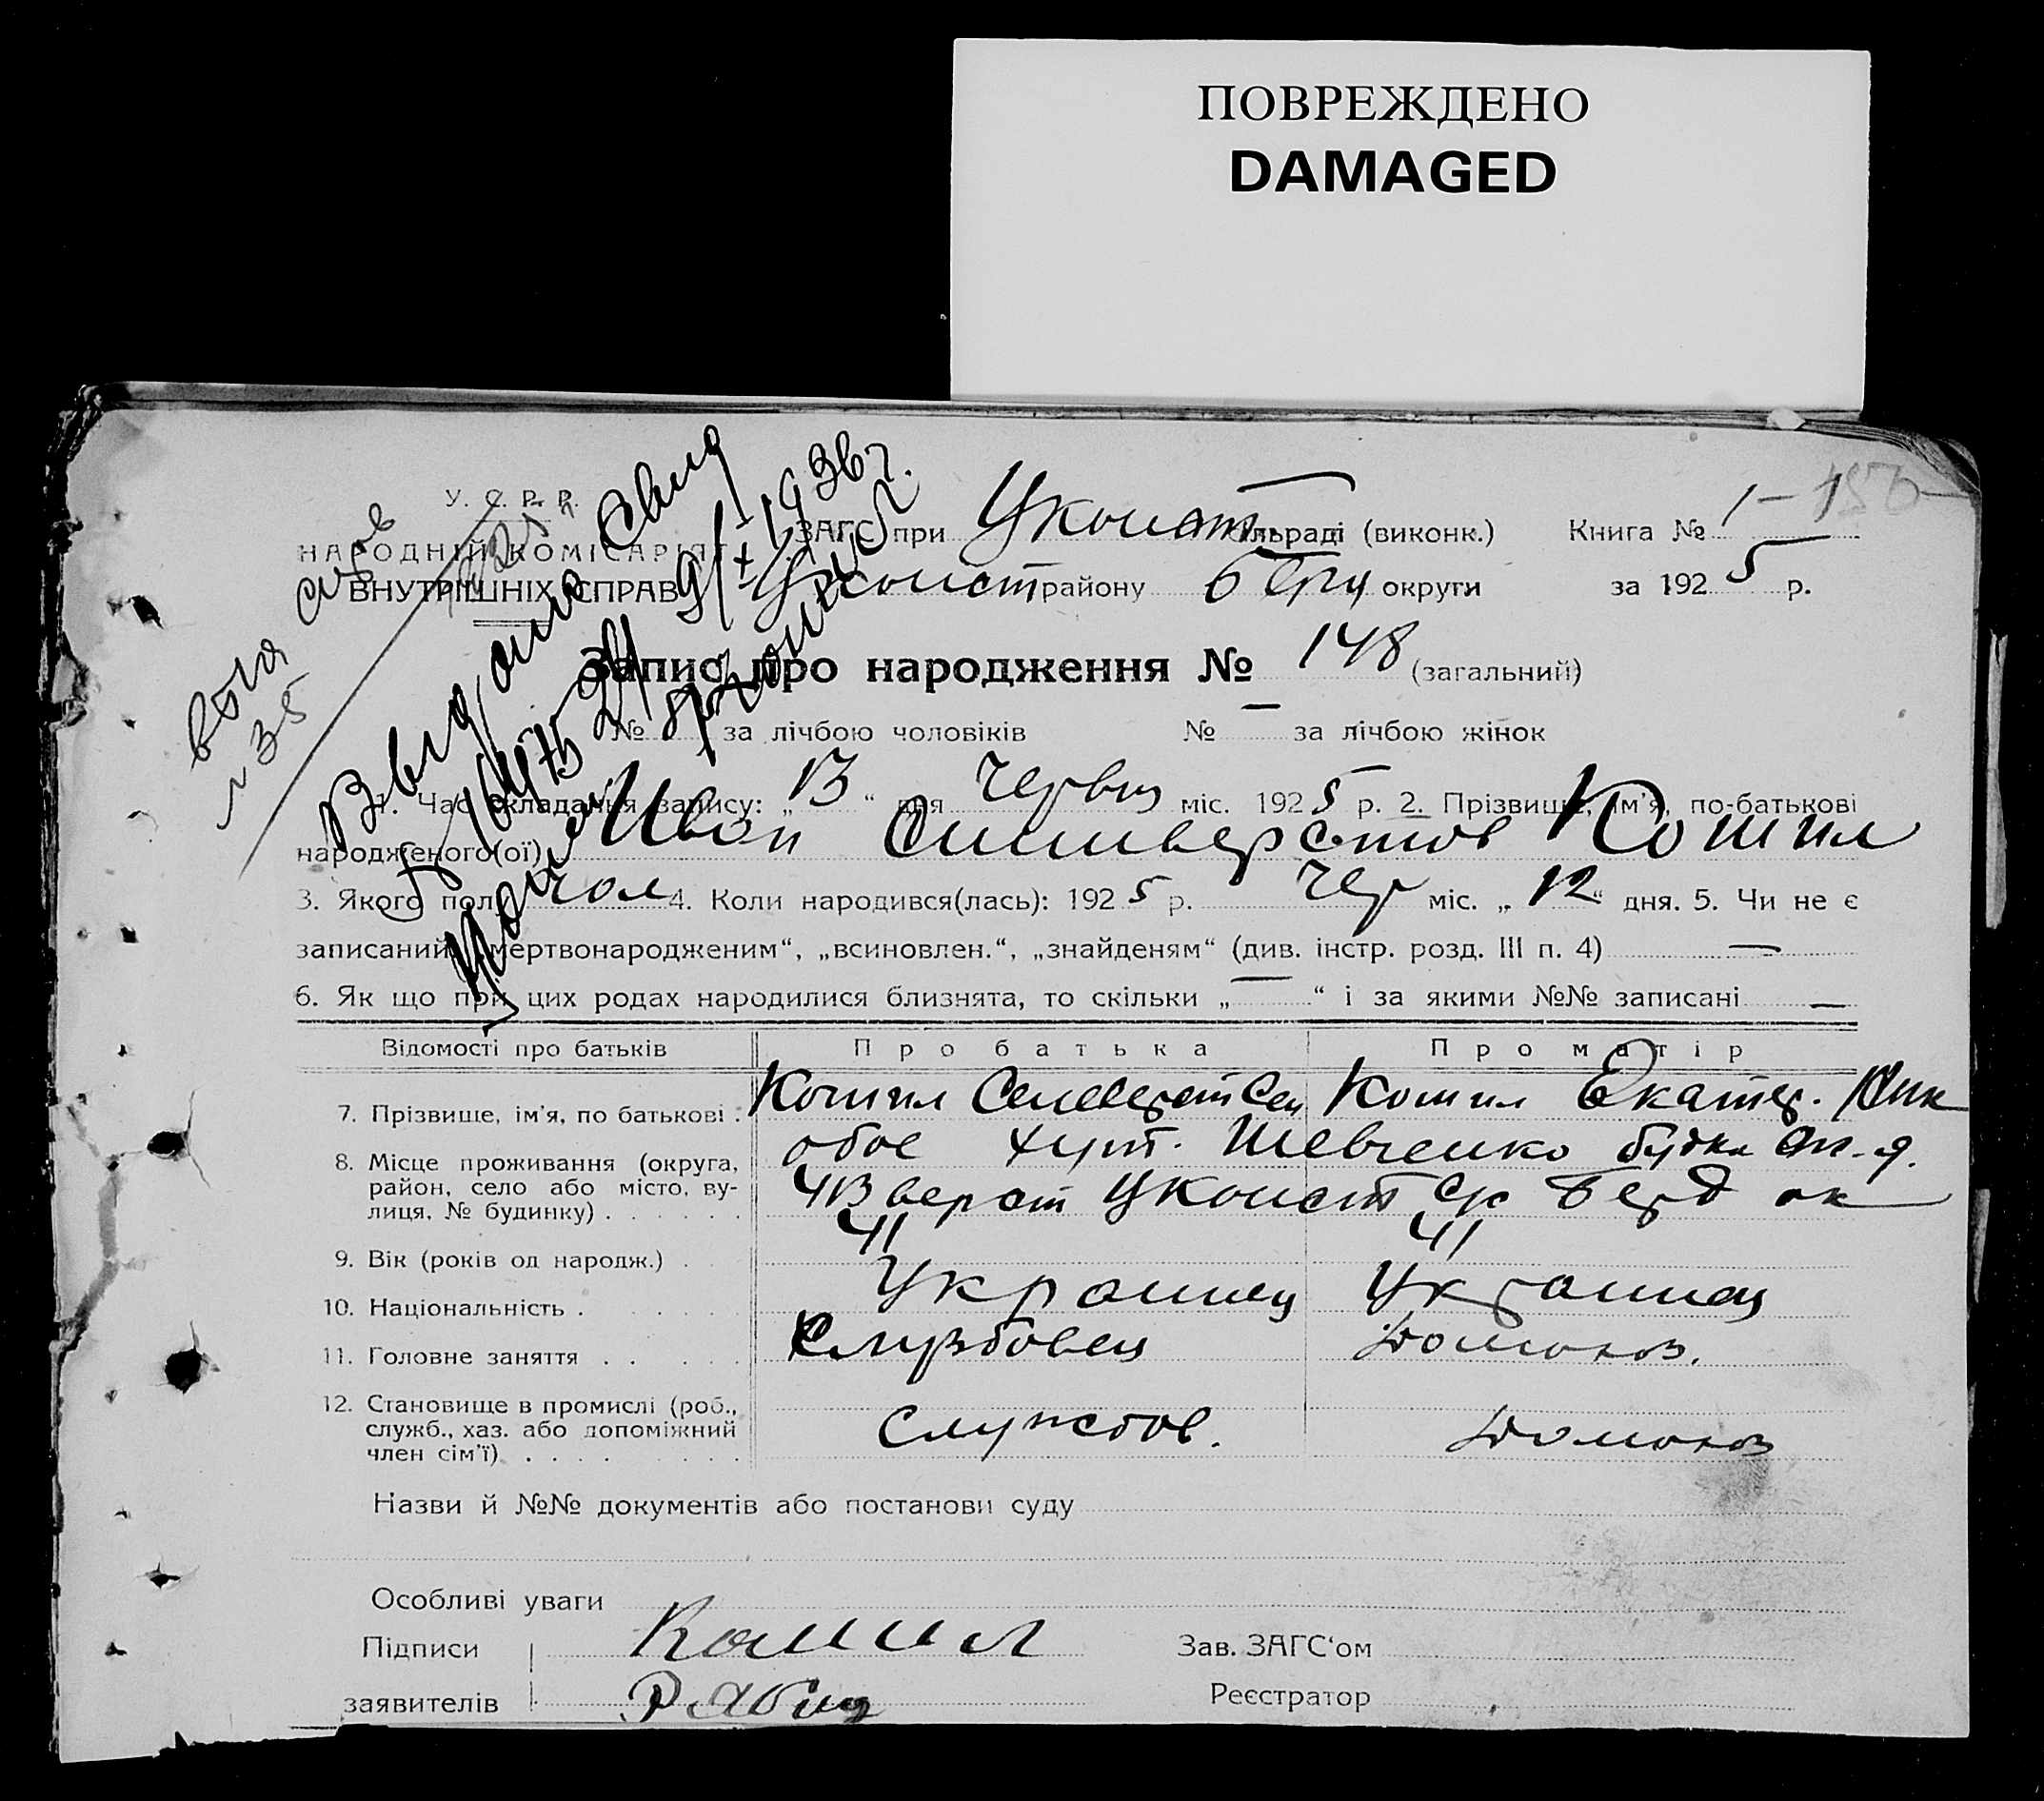 ПОВРЕЖДЕНО
DAMAGED
У. С. Р. Р.
НАРОДНІЙ КОМІСАРІЯТ
ВНУТРІШНІХ СПРАВ
ЗАГС при Уконст сільраді (виконк.) Книга № 1
Уконст району Берд округи за 1925 р.
Запис про народження № 148 (загальний)
№ за лічбою чоловіків № — за лічбою жінок
1. Час складання запису: „13“ дня Червн міс. 1925 р. 2. Прізвище, ім'я, по-батькові
народженого(ої) Иван Сильверстов Кошил
3. Якого полу чол 4. Коли народився(лась): 1925 р. Чер міс. „12“ дня. 5. Чи не є
записаний „мертвонародженим“, „всиновлен.“, „знайденям“ (див. інстр. розд. III п. 4) —
6. Як що при цих родах народилися близнята, то скільки „—“ і за якими №№ записані —
Відомості про батьків Про батька Про матір
7. Прізвище, ім'я, по батькові . Кошил Кошил Екатер. Ник
8. Місце проживання (округа, район, село або місто, вулиця, № будинку) . обое хут. Шевченко будка
верст Уконст с/с Берд ок
9. Вік (років од народж.) . 41 41
10. Національність . Украинец Украинец
11. Головне заняття . . Службовец Домохоз.
12. Становище в промислі (роб., служб., хаз. або допоміжний член сім'ї) . Службов. Домохоз
Назви й №№ документів або постанови суду
Особливі уваги
Підписи Кошил Зав. ЗАГС'ом
заявителів Рябуд Реєстратор
Выдано свид
1936 г.